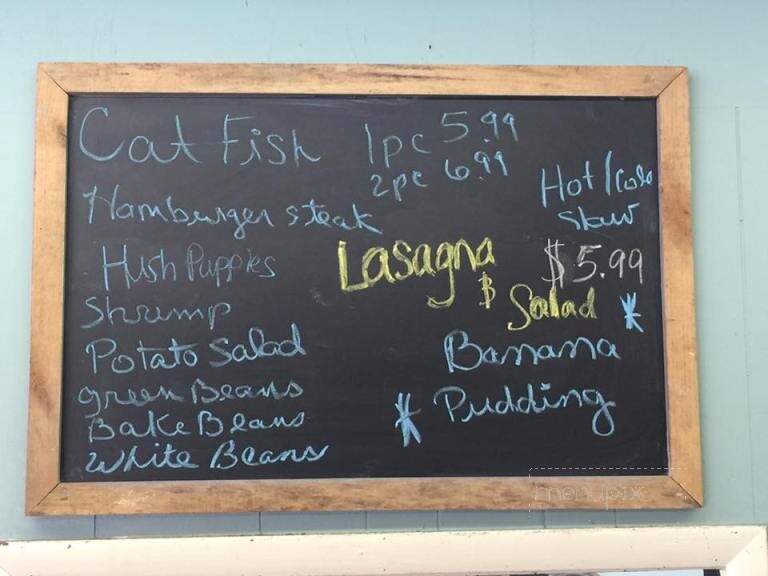 Cat Fish 1pc 5.99
2pc 6.99
Hot / Cole
Slaw
Hamburger steak
Hush Puppies
Lasagna $5.99
& Salad
Shrimp
Potato Salad
Banana
Pudding
green Beans
Bake Beans
White Beans
menupix